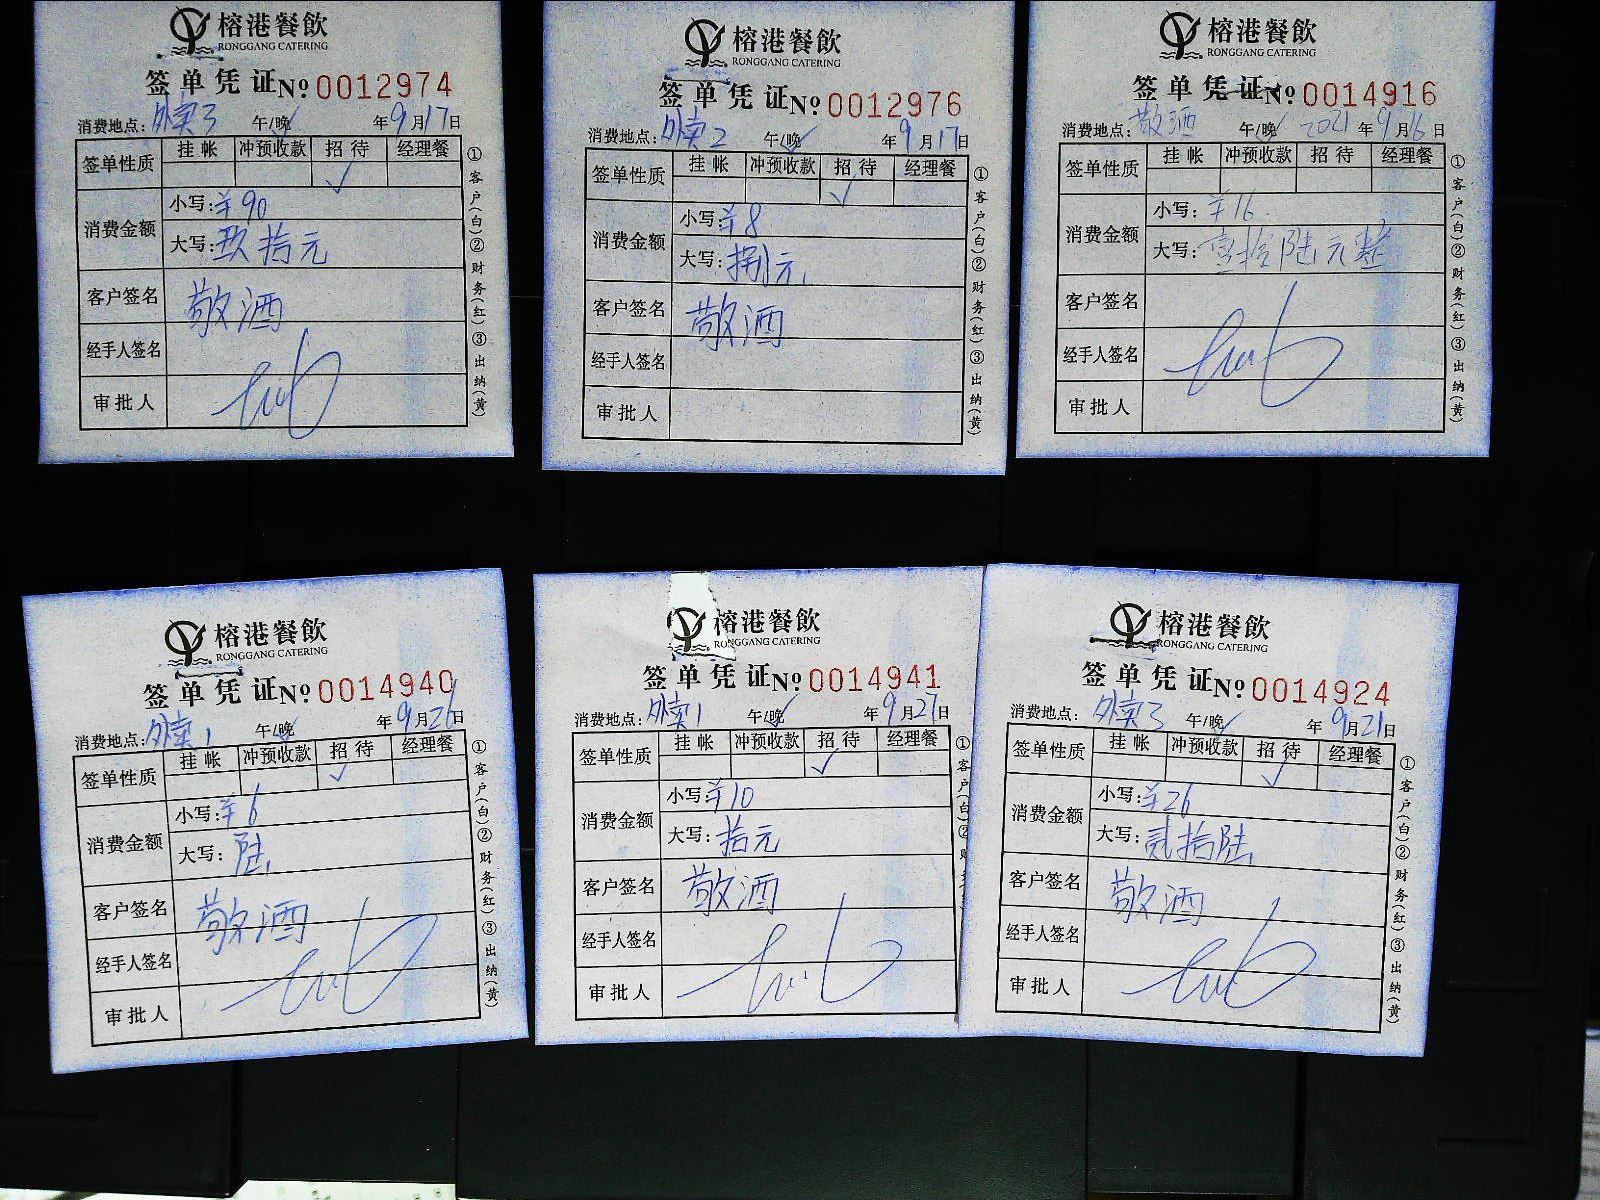 榕港餐飲
RONGGANG CATERING
签单凭证 No 0012974
消费地点: 外卖3 午/晚✓ 年9月17日
签单性质 挂帐 冲预收款 招待 经理餐
✓
消费金额
小写: ¥90
大写: 玖拾元
客户签名 敬酒
经手人签名
审批人
①客户(白)②财务(红)③出纳(黄)
榕港餐飲
RONGGANG CATERING
签单凭证 No 0012976
消费地点: 外卖2 午/晚✓ 年9月17日
签单性质 挂帐 冲预收款 招待 经理餐
✓
消费金额
小写: ¥8
大写: 捌元
客户签名 敬酒
经手人签名
审批人
①客户(白)②财务(红)③出纳(黄)
榕港餐飲
RONGGANG CATERING
签单凭证 No 0014916
消费地点: 敬酒 午/晚✓ 2021年9月16日
签单性质 挂帐 冲预收款 招待 经理餐
消费金额
小写: ¥16
大写: 壹拾陆元整
客户签名
经手人签名
审批人
①客户(白)②财务(红)③出纳(黄)
榕港餐飲
RONGGANG CATERING
签单凭证 No 0014940
消费地点: 外卖1 午/晚✓ 年9月26日
签单性质 挂帐 冲预收款 招待 经理餐
✓
消费金额
小写: ¥6
大写: 陆
客户签名 敬酒
经手人签名
审批人
①客户(白)②财务(红)③出纳(黄)
榕港餐飲
RONGGANG CATERING
签单凭证 No 0014941
消费地点: 外卖1 午/晚✓ 年9月27日
签单性质 挂帐 冲预收款 招待 经理餐
✓
消费金额
小写: ¥10
大写: 拾元
客户签名 敬酒
经手人签名
审批人
①客户(白)②财
榕港餐飲
RONGGANG CATERING
签单凭证 No 0014924
消费地点: 外卖3 午/晚✓ 年9月21日
签单性质 挂帐 冲预收款 招待 经理餐
✓
消费金额
小写: ¥26
大写: 贰拾陆
客户签名 敬酒
经手人签名
审批人
①客户(白)②财务(红)③出纳(黄)